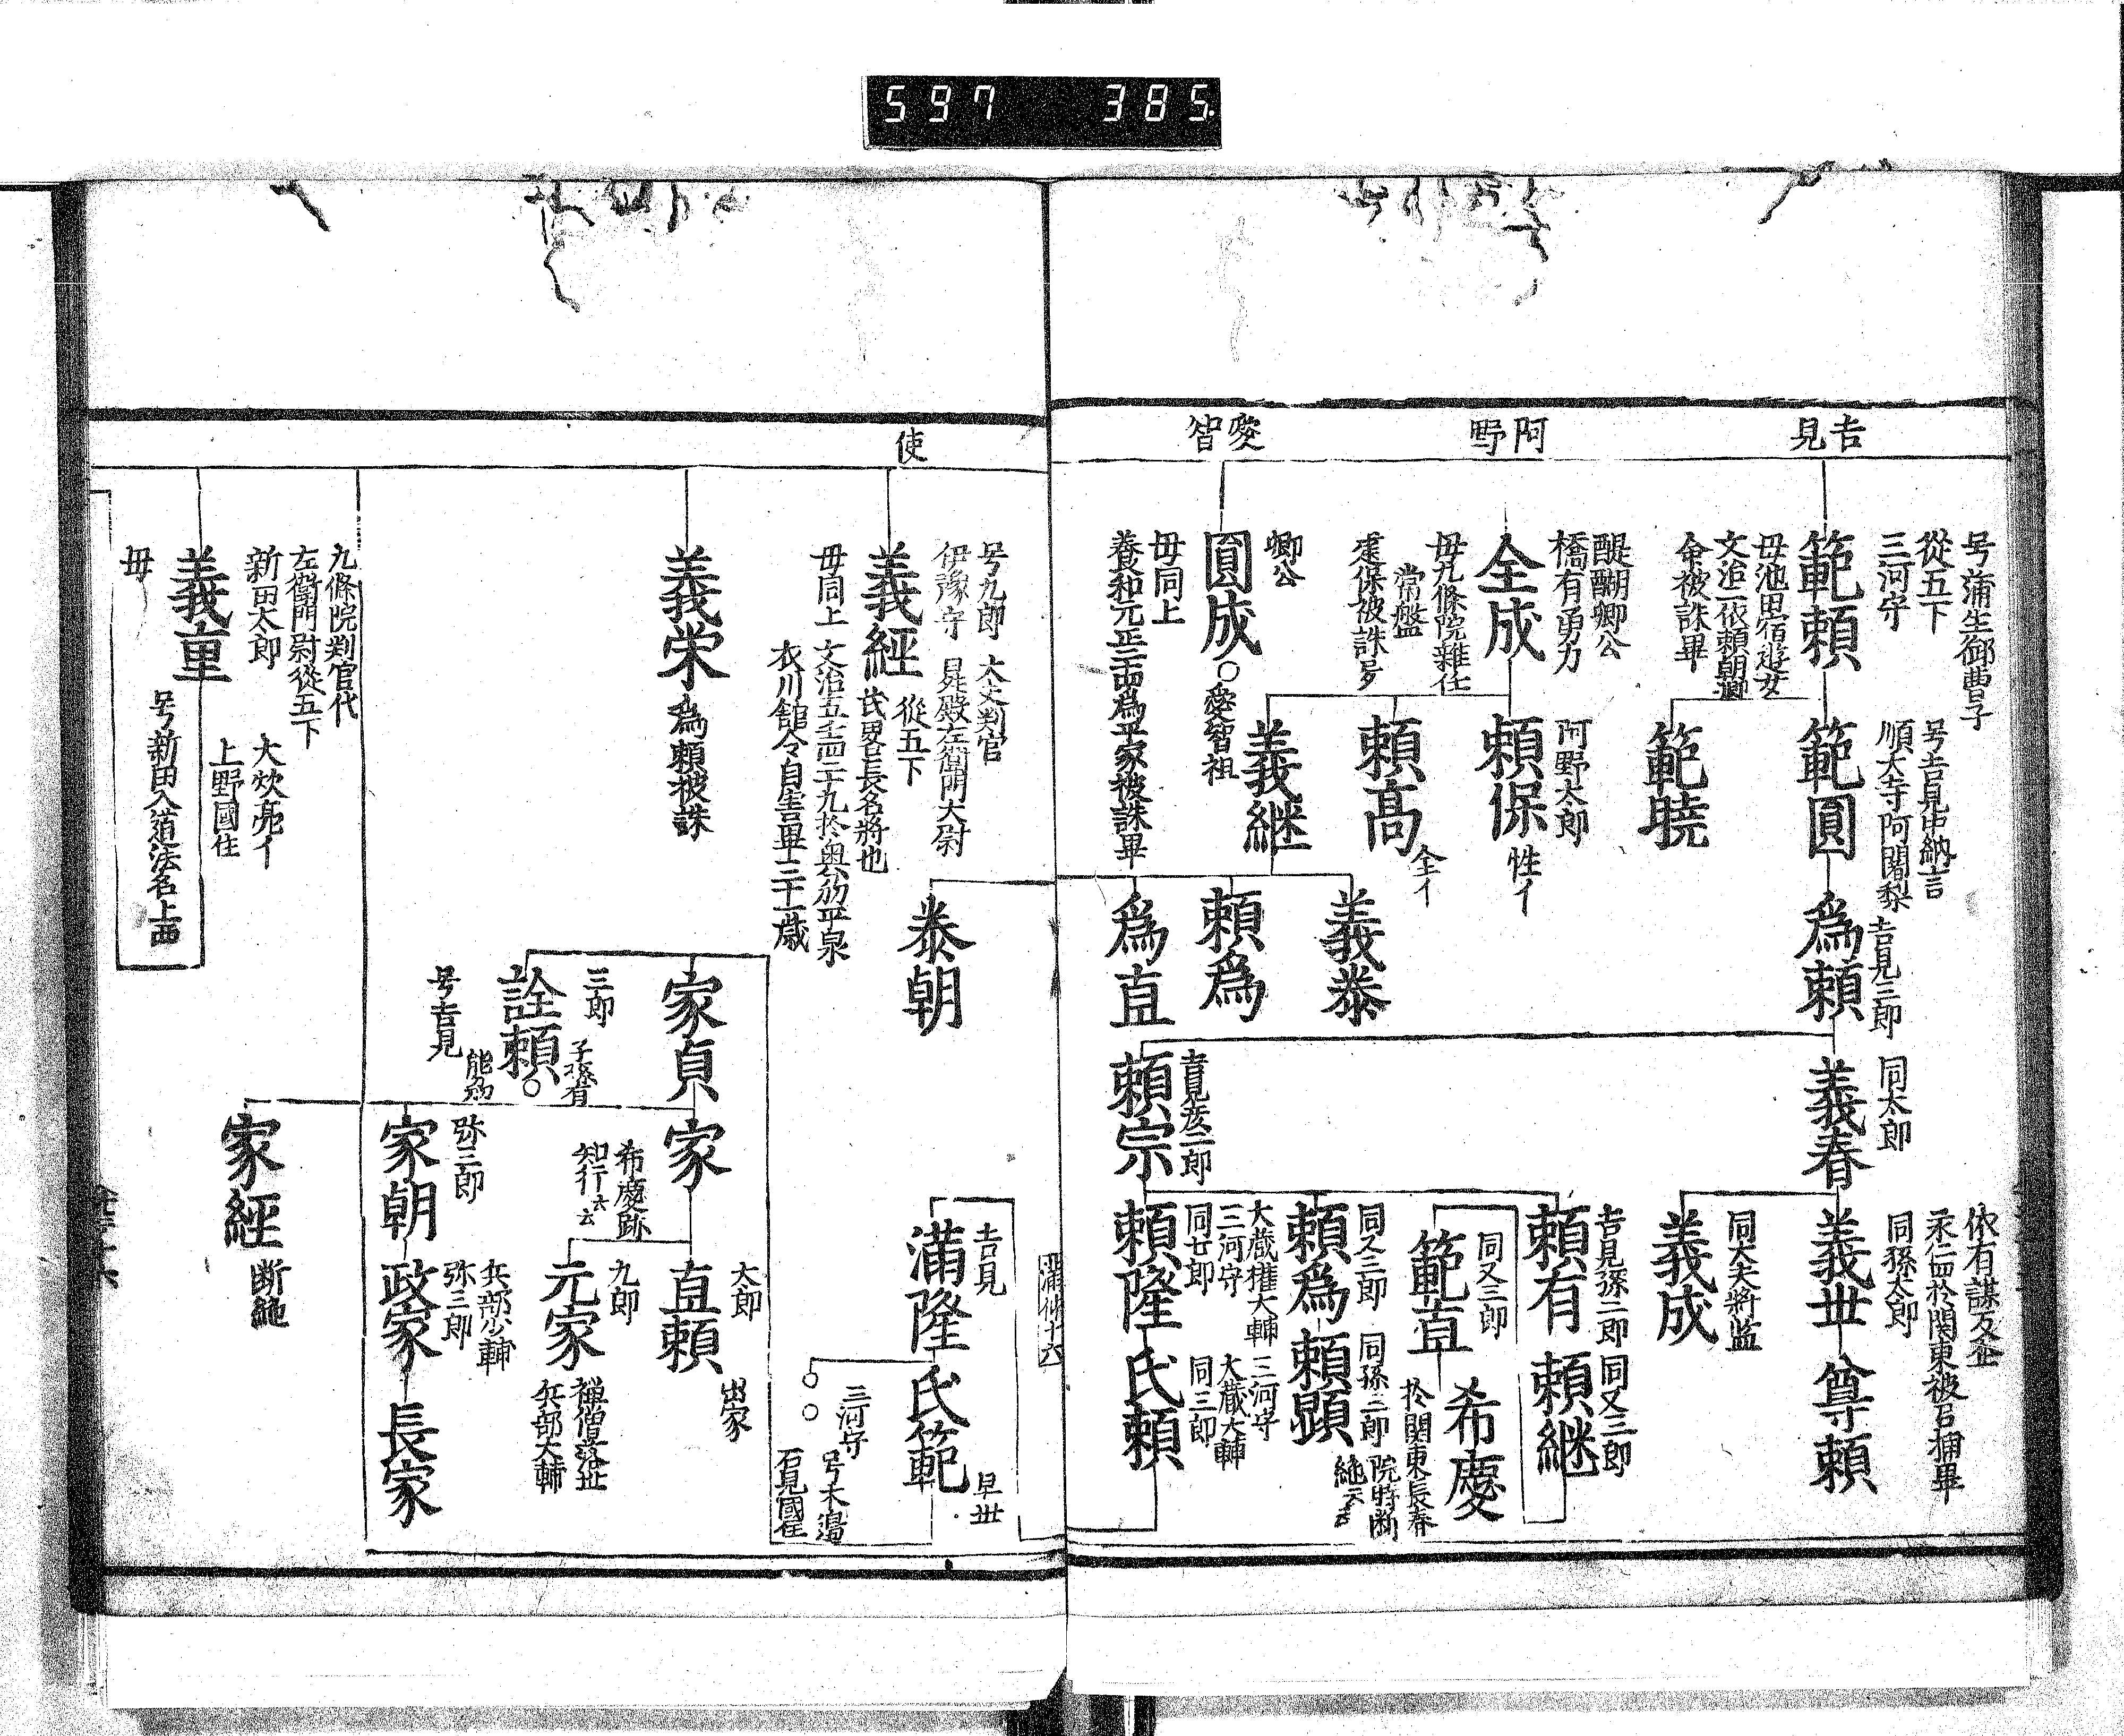 597 385
吉見
阿野
愛智
号蒲生御曹子
從五下
三河守
範頼
母池田宿遊女
文治二依頼朝卿
命被誅畢
号吉見中納言
順大寺阿闍梨
範圓
範曉
吉見三郎
爲頼
同太郎
義春
依有謀反企
永仁四於関東被召捕畢
同孫太郎
義世
尊頼
同大夫將監
義成
吉見彦二郎
頼宗
吉見孫二郎
頼有
同又三郎
頼継
同又三郎
範直
希慶
於関東長春
院時断
絶云云
同又三郎
頼爲
同孫二郎
頼顕
大蔵権大輔
三河守
同七郎
頼隆
三河守
大蔵大輔
同三郎
氏頼
醍醐卿公
橋有勇力
全成
母九條院雜仕
常盤
建保被誅
阿野太郎
頼保
性イ
頼高
全イ
義継
義泰
頼爲
爲直
卿公
圓成
愛智祖
母同上
養和元正二両爲平家被誅畢
使
号九郎 大夫判官
伊豫守 昇殿左衛門大尉
義經
從五下
武畧長名將也
母同上 文治五壬四二十九於奥州平泉
衣川館令自害畢三十一歳
泰朝
吉見
満隆
氏範
早世
三河守
号木邉
石見國住
義栄
爲頼被誅
家貞
三郎
詮頼
子孫有
号吉見
能州
家
希慶跡
知行云云
太郎
直頼
出家
九郎
元家
禅僧落世
兵部大輔
弥三郎
家朝
兵部少輔
弥三郎
政家
長家
家經
断絶
九條院判官代
左衛門尉從五下
新田太郎
大炊亮イ
上野國住
義重
号新田入道法名上西
母